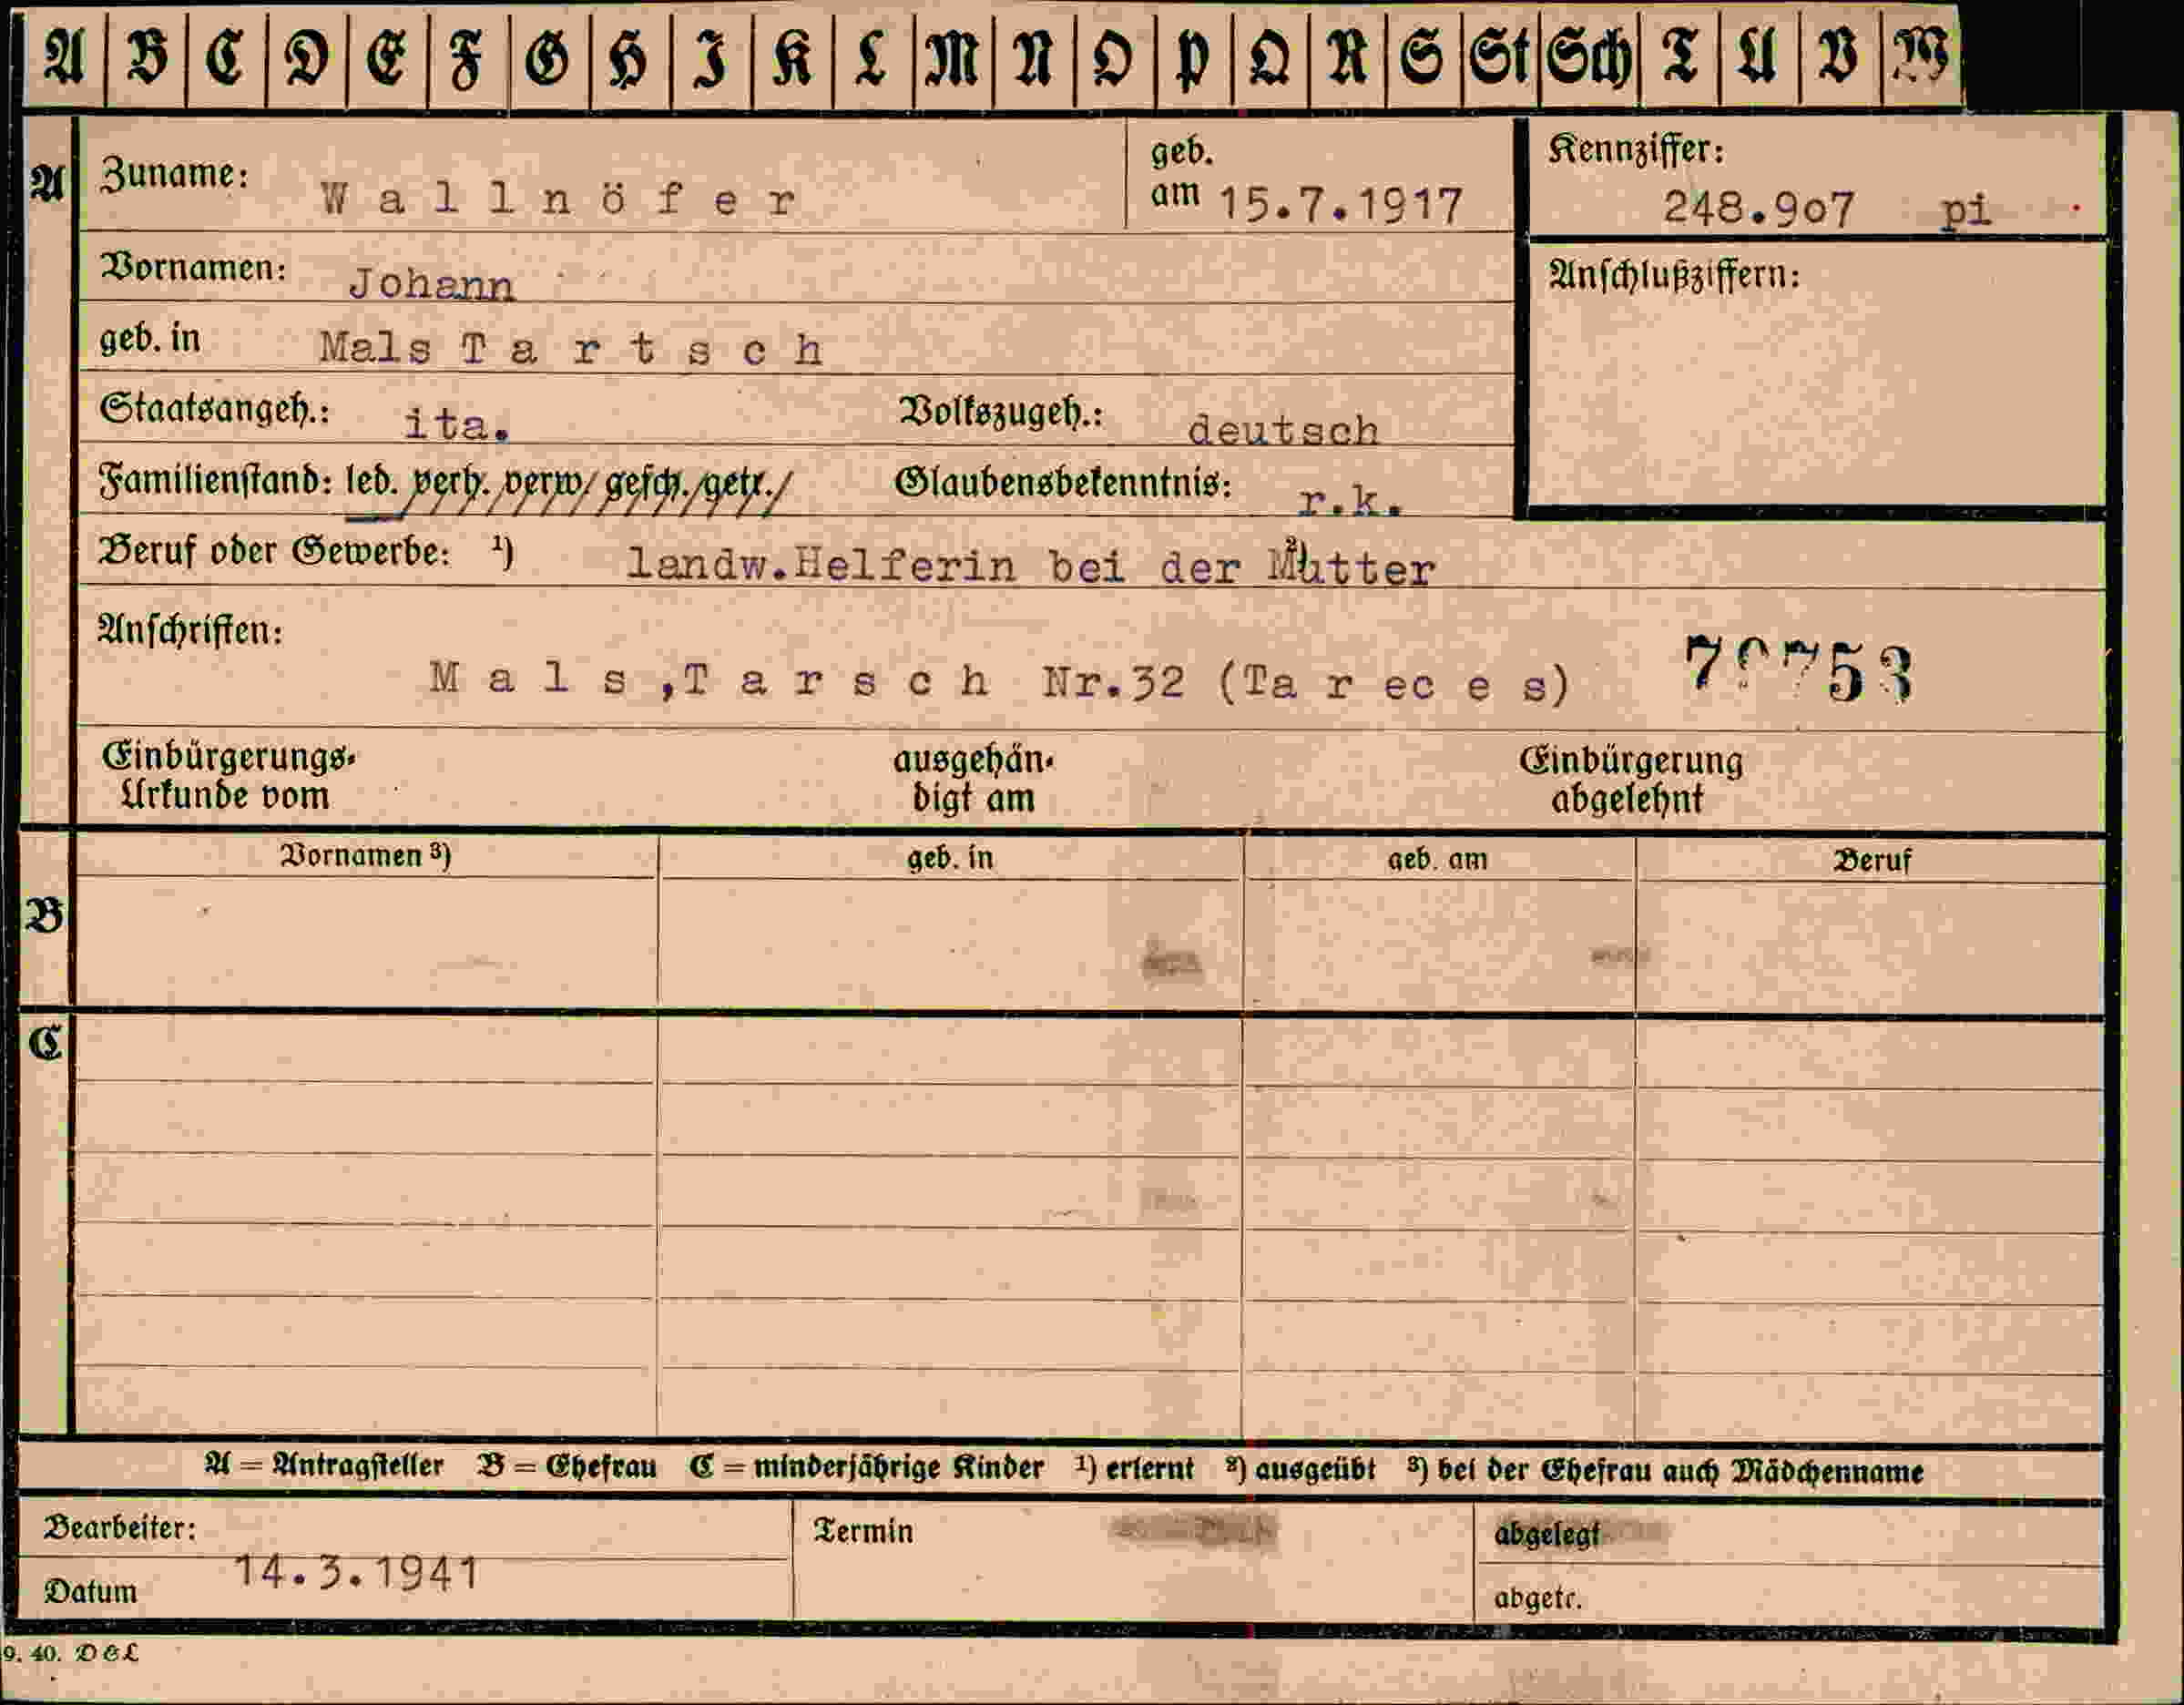 A B C D E F G H I K L M N O P Q R S St Sch T U V W
A Zuname: Wallnöfer geb. am 15.7.1917 Kennziffer: 248.9o7 pi
Vornamen: Johann Anschlußziffern:
geb. in Mals Tartsch
Staatsangeh.: ita. Volkszugeh.: deutsch
Familienstand: led. verh. verw/ gesch./getr./ Glaubensbekenntnis: r.k.
Beruf oder Gewerbe: ¹) landw.Helferin bei der Mutter ²)
Anschriften:
Mals,Tarsch Nr.32 (Tareces)
Einbürgerungs- ausgehän- Einbürgerung
Urkunde vom digt am abgelehnt
Vornamen ³) geb. in geb. am Beruf
B
C
A = Antragsteller B = Ehefrau C = minderjährige Kinder ¹) erlernt ²) ausgeübt ³) bei der Ehefrau auch Mädchenname
Bearbeiter: Termin abgelegt
14.3.1941
Datum abgetr.
9. 40. D&L